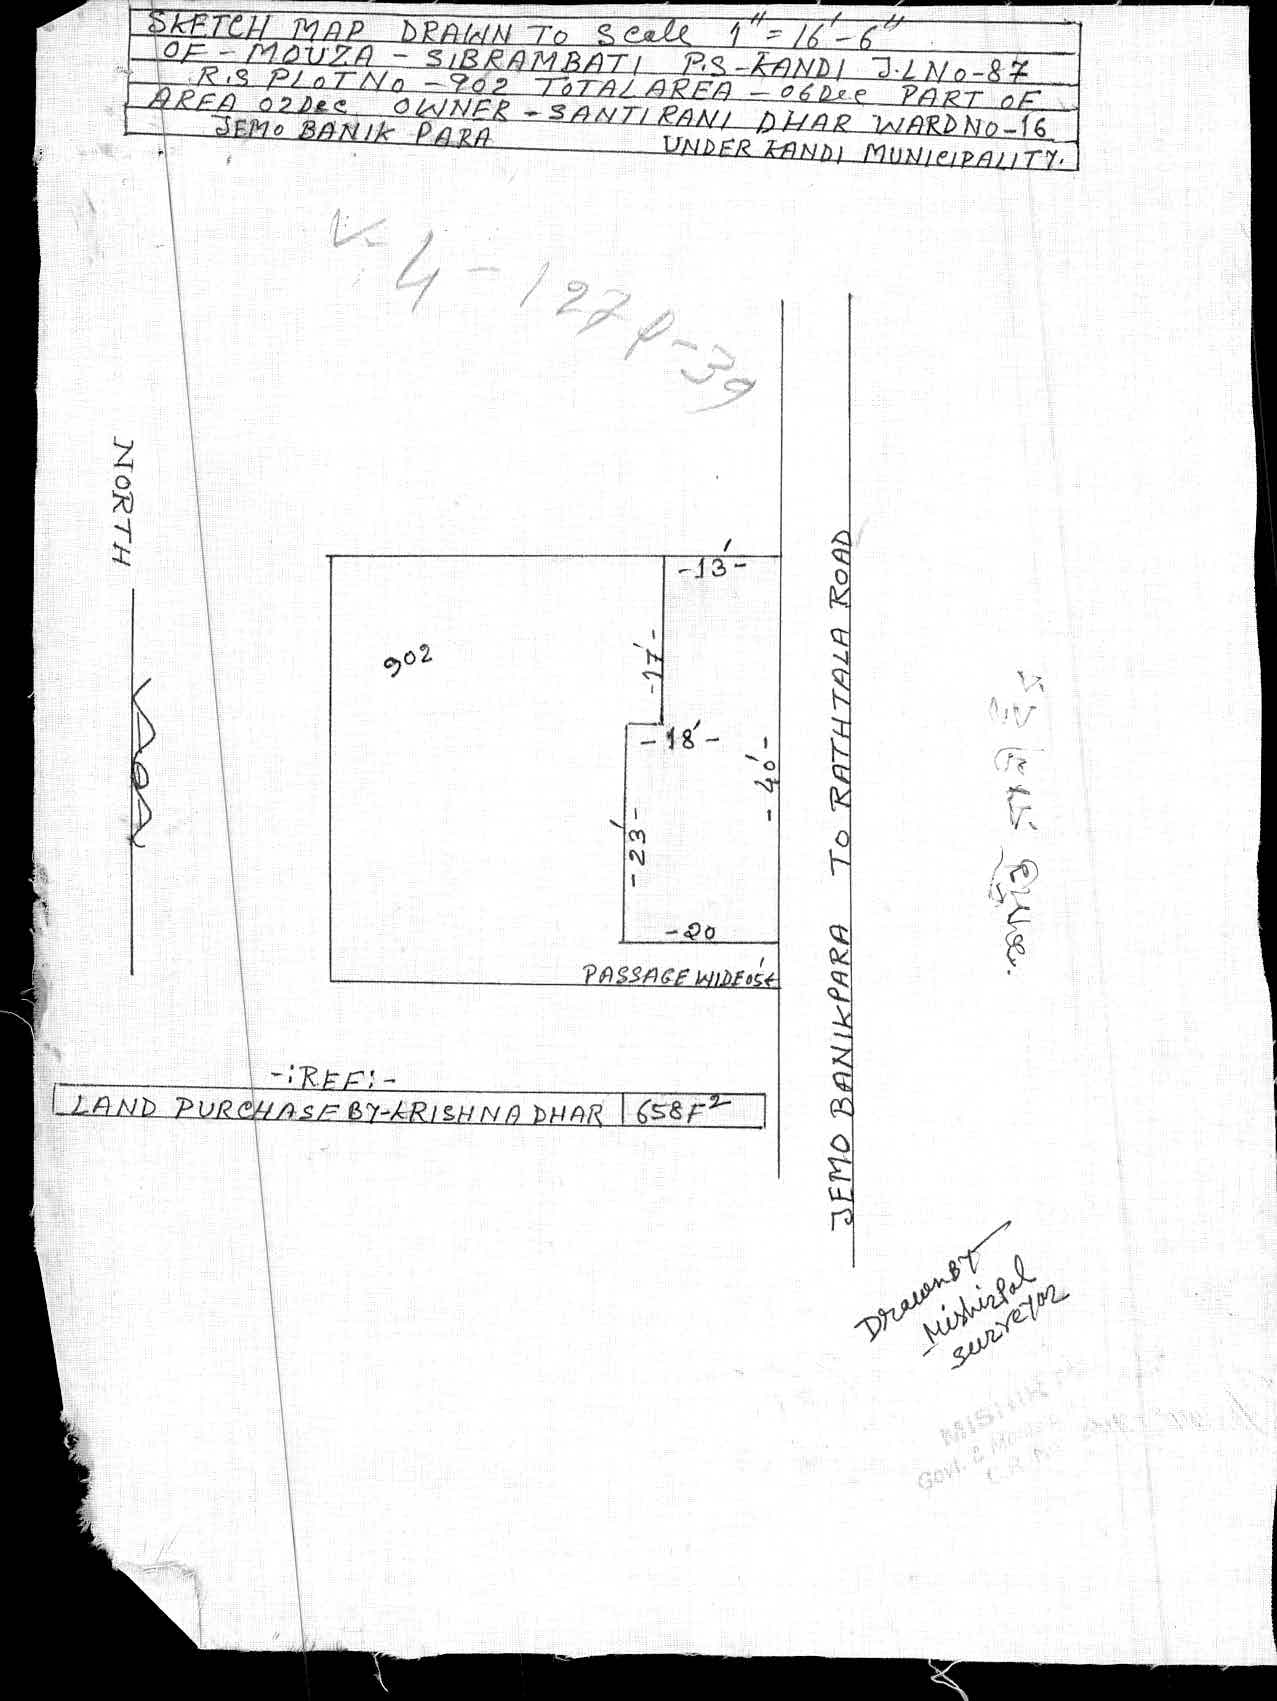 SKETCH MAP DRAWN TO Scale 1"=16'-6"
OF - MOUZA - SIBRAMBATI P.S-KANDI J.LNo-87
R.S PLOT No -902 TOTAL AREA -06Dec PART OF
AREA 02Dec OWNER-SANTIRANI DHAR WARD NO-16
JEMO BANIK PARA UNDER KANDI MUNICIPALITY.
4-127 P-39
NORTH
-13'-
902
-17'-
-18'-
-40'-
-23'-
-20
PASSAGE WIDE 05'
JEMO BANIKPARA TO RATHTALA ROAD
-:REF:-
LAND PURCHASE BY-KRISHNA DHAR 658F²
Drawn BY
Mishirpal
surveyor
MISHIR
Govt.